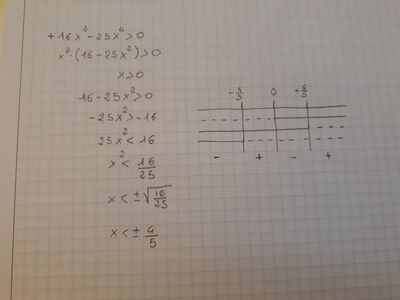 +16x²-25x⁴>0
x²·(16-25x²)>0
x>0
16-25x²>0
-25x²>-16
25x²<16
x²< 16/25
x<±√16/25
x<± 4/5
-4/5 0 +4/5
- + - +